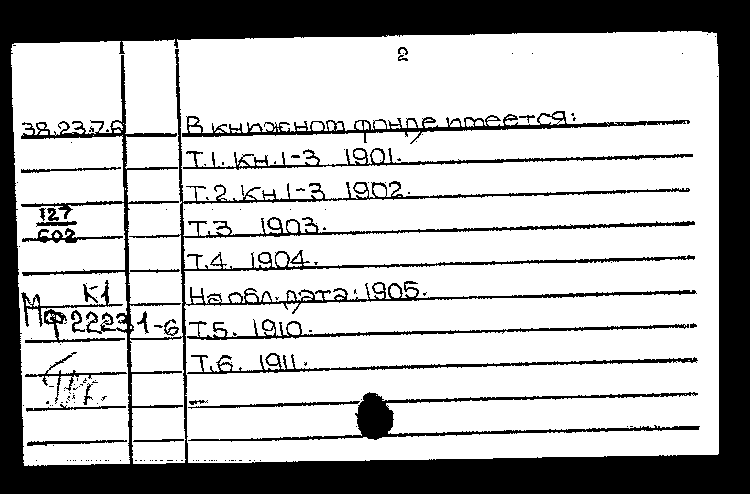 2
38.23.7.6 В книжном фонде имеется:
Т.1. Кн.1-3 1901.
Т.2. Кн.1-3 1902.
127
602
Т.3 1903.
Т.4. 1904.
К1
На обл. дата: 1905.
Мф22231-6
Т.5. 1910.
Т.6. 1911.